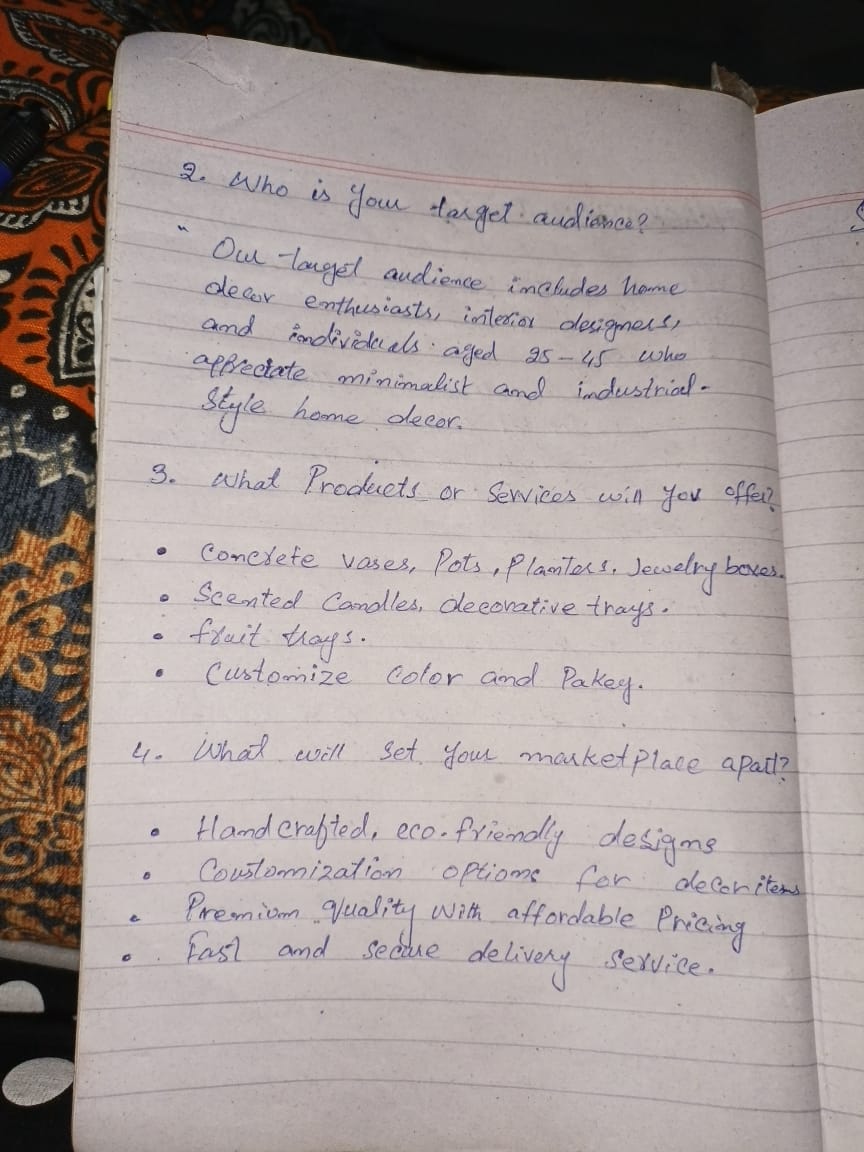 2. Who is your target audience?
" Our target audience includes home
decor enthusiasts, interior designers,
and individuals aged 25-45 who
appreciate minimalist and industrial-
style home decor.
3. What Products or Services will you offer?
• Concrete vases, Pots, Planters, Jewelry boxes.
• Scented Candles, decorative trays.
• fruit trays.
• Customize Color and Pakey.
4. What will set your marketplace apart?
• Handcrafted, eco-friendly designs
• Coustomization options for decor items
• Premium quality with affordable Pricing
• Fast and secure delivery service.